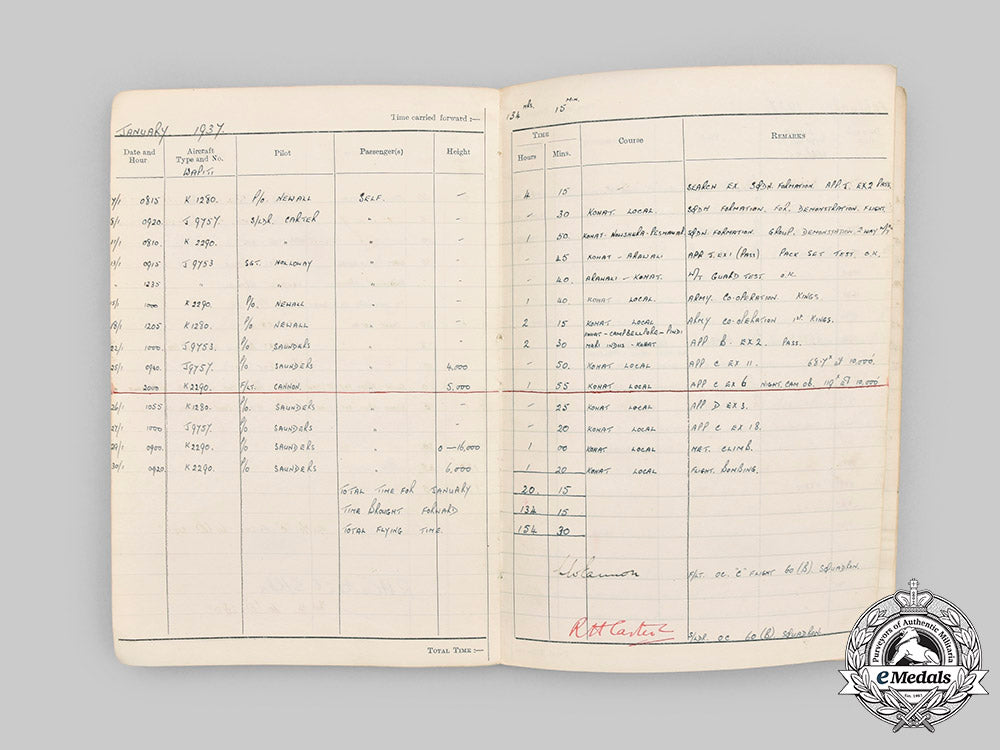 JANUARY 1937.
Time carried forward :—
Date and Hour Aircraft Type and No. Pilot Passenger(s) Height
WAPITI
0815 K 1280. P/O. NEWALL SELF. —
8/1 0920. J 9757. S/LDR. CARTER " —
11/1 0810. K 2290. " " —
13/1 0915 J 9753 SGT. HOLLOWAY " —
" 1235 " " " —
15/1 1000 K2290. P/O. NEWALL " —
18/1 1205 K1280. P/O NEWALL " —
22/1 1000. J9753. P/O SAUNDERS " —
25/1 0940. J9757. P/O SAUNDERS " 4,000
.. 2000 K2290. F/LT. CANNON. " 5,000
26/1 1055 K1280. P/O SAUNDERS " —
27/1 1000 J9757. P/O SAUNDERS " —
0900. K2290. P/O SAUNDERS " 0—16,000
30/1 0920. K2290. P/O SAUNDERS " 6,000
TOTAL TIME FOR JANUARY
TIME BROUGHT FORWARD
TOTAL FLYING TIME.
TOTAL TIME :—
134 hrs. 15 Min.
TIME Course REMARKS
Hours Mins.
4 15 — SEARCH EX. SQDN. FORMATION APP. J. EX2 PASS.
- 30 KOHAT LOCAL. SQDN FORMATION. FOR DEMONSTRATION FLIGHT.
1 50. KOHAT-NOWSHERA-PESHAWAR SQDN. FORMATION. GROUP. DEMONSTATION, 2 WAY
- 45 KOHAT - ARAWALI APP J. EX1 (PASS) PACK SET TEST. O.K.
- 40. ARAWALI - KOHAT. W/T GUARD TEST O.K.
1 40 KOHAT LOCAL. ARMY. CO-OPERATION. KINGS.
2 15 KOHAT LOCAL ARMY CO-OPERATION 1ST. KINGS.
KOHAT-CAMPBELLPORE-PINDI
2 30 MARI INDUS - KOHAT APP B. EX2. PASS.
- 50. KOHAT LOCAL APP C EX 11. 10,000.
1 55 KOHAT LOCAL APP C EX 6 NIGHT. CAM OB. 10,000
- 25 KOHAT LOCAL APP D EX 3.
- 20 KOHAT LOCAL APP C EX 18.
1 00 KOHAT LOCAL MET. CLIMB.
1 20 KOHAT LOCAL FLIGHT. BOMBING.
20. 15
134 15
154 30
Cannon F/LT. OC. "C" FLIGHT 60 (B) SQUADRON.
R H Carter S/LDR. OC 60 (B) SQUADRON
Purveyors of Authentic Militaria
eMedals